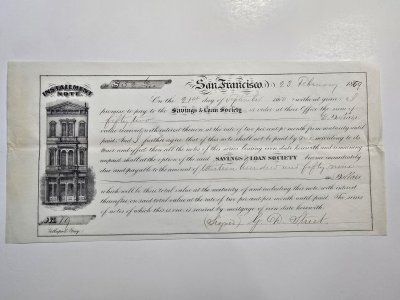 INSTALLMENT NOTE.
San Francisco, 23 February 1869
On the 21st day of September 18 without grace I
promise to pay to the Savings & Loan Society or order at their Office the sum of
fifty two Dollars
value received with interest thereon at the rate of two per cent per month from maturity until
paid. And I further agree that if this note shall not be paid by me at maturity
then and after, then all the notes of this series bearing even date herewith and remaining
unpaid shall at the option of the said SAVINGS AND LOAN SOCIETY become immediately
due and payable to the amount of thirteen hundred and fifty nine
Dollars
which will be their total value at the maturity of and including this note with interest
thereafter on said total value at the rate of two per cent per month until paid. The series
of notes of which this is one is secured by mortgage of even date herewith.
(Signed) G. D. Street